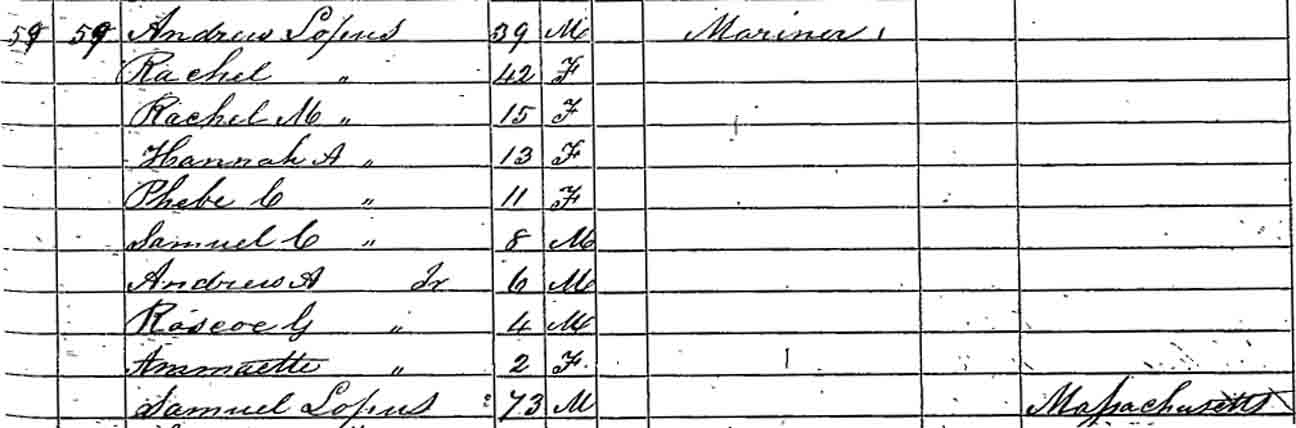 59 59 Andrew Lopus 39 M Mariner
Rachel " 42 F
Rachel M " 15 F
Hannah A " 13 F
Phebe C " 11 F
Samuel C " 8 M
Andrew A Jr 6 M
Roscoe G " 4 M
Ammaette " 2 F
Samuel Lopus 73 M Massachusetts